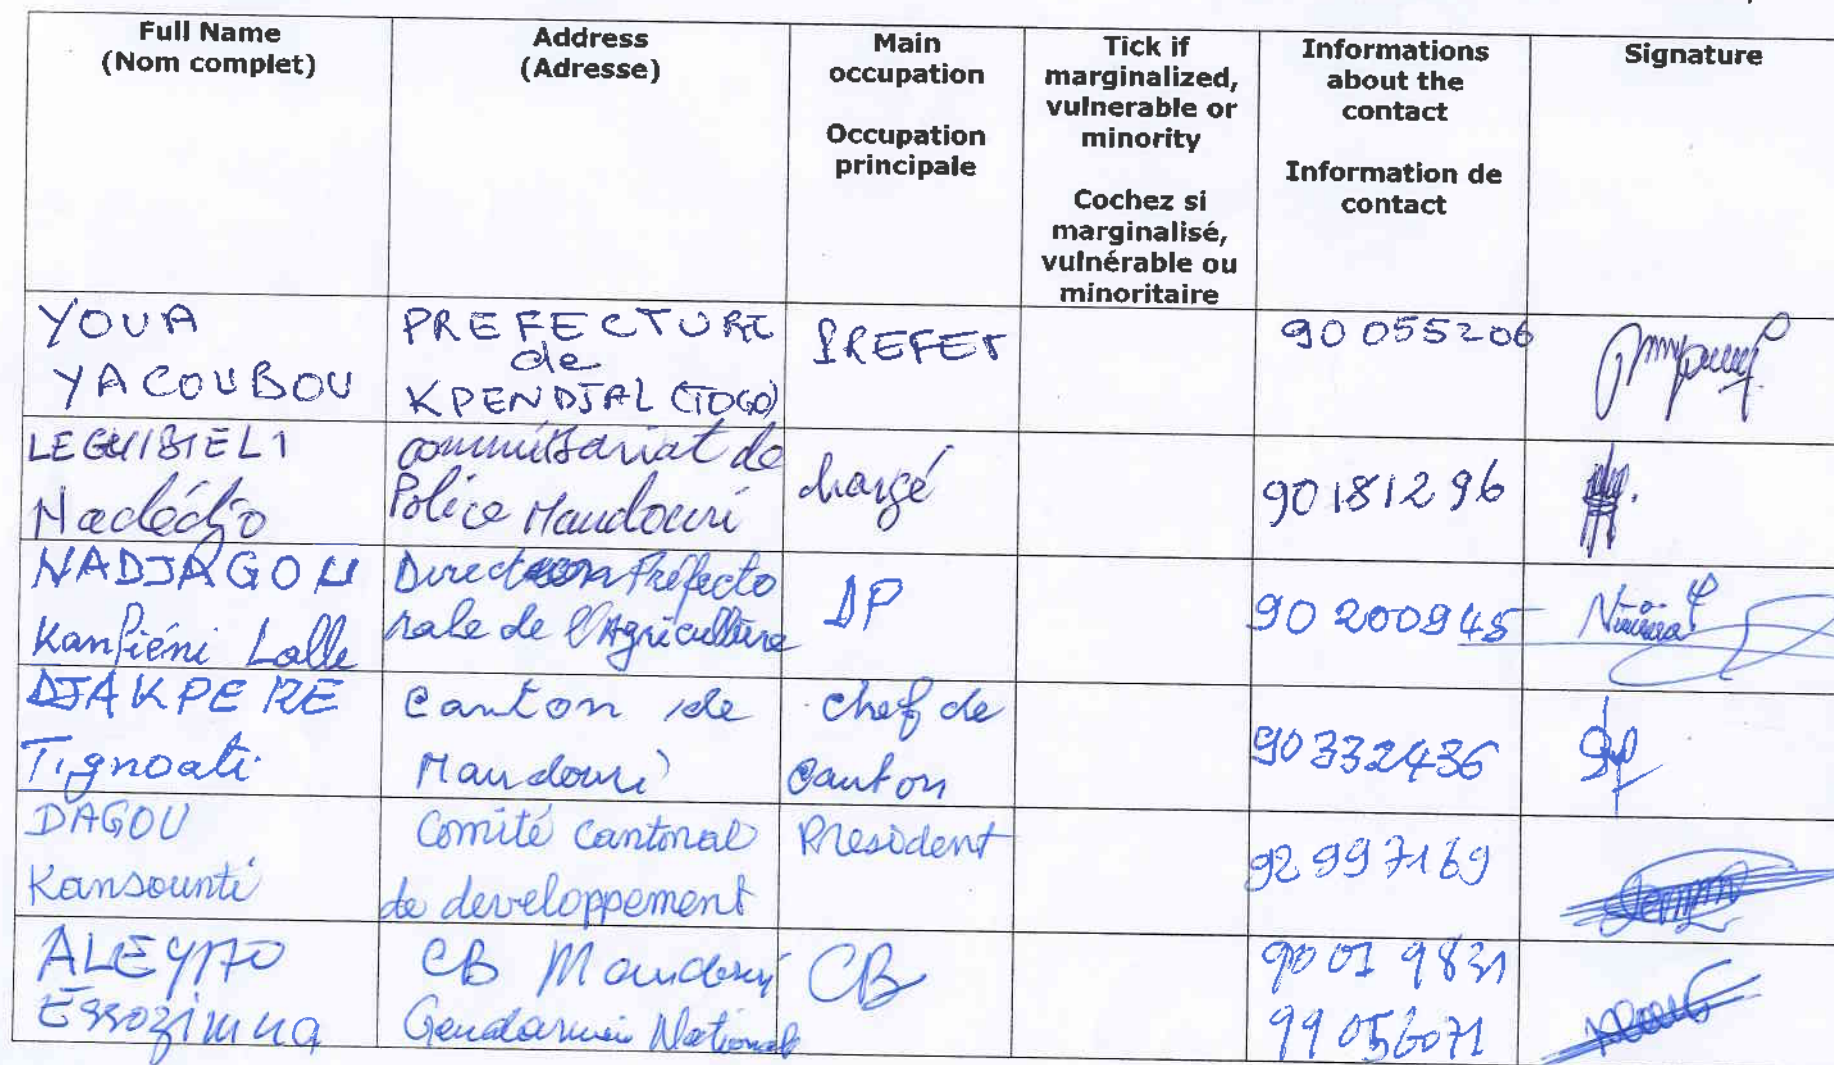 Full Name
(Nom complet)
Address
(Adresse)
Main
occupation
Occupation
principale
Tick if
marginalized,
vulnerable or
minority
Cochez si
marginalisé,
vulnérable ou
minoritaire
Informations
about the
contact
Information de
contact
Signature
YOUA
YACOUBOU
PREFECTURE
de
KPENDJAL (TOGO)
PREFET
90 055206
LEGUIBIELI
commissariat de
Police Mandouri
chargé
90181296
NADJAGOU
Kanfiéni Lalle
Direction Préfecto
rale de l'Agriculture
DP
90 200945
DJAKPERE
Tignoati
Canton de
Mandouri
chef de
canton
90332436
DAGOU
Kansounti
Comité cantonal
de developpement
President
92997169
ALEYITO
Essozimna
CB Mandouri
Gendarmerie National
CB
90 01 9831
99056071